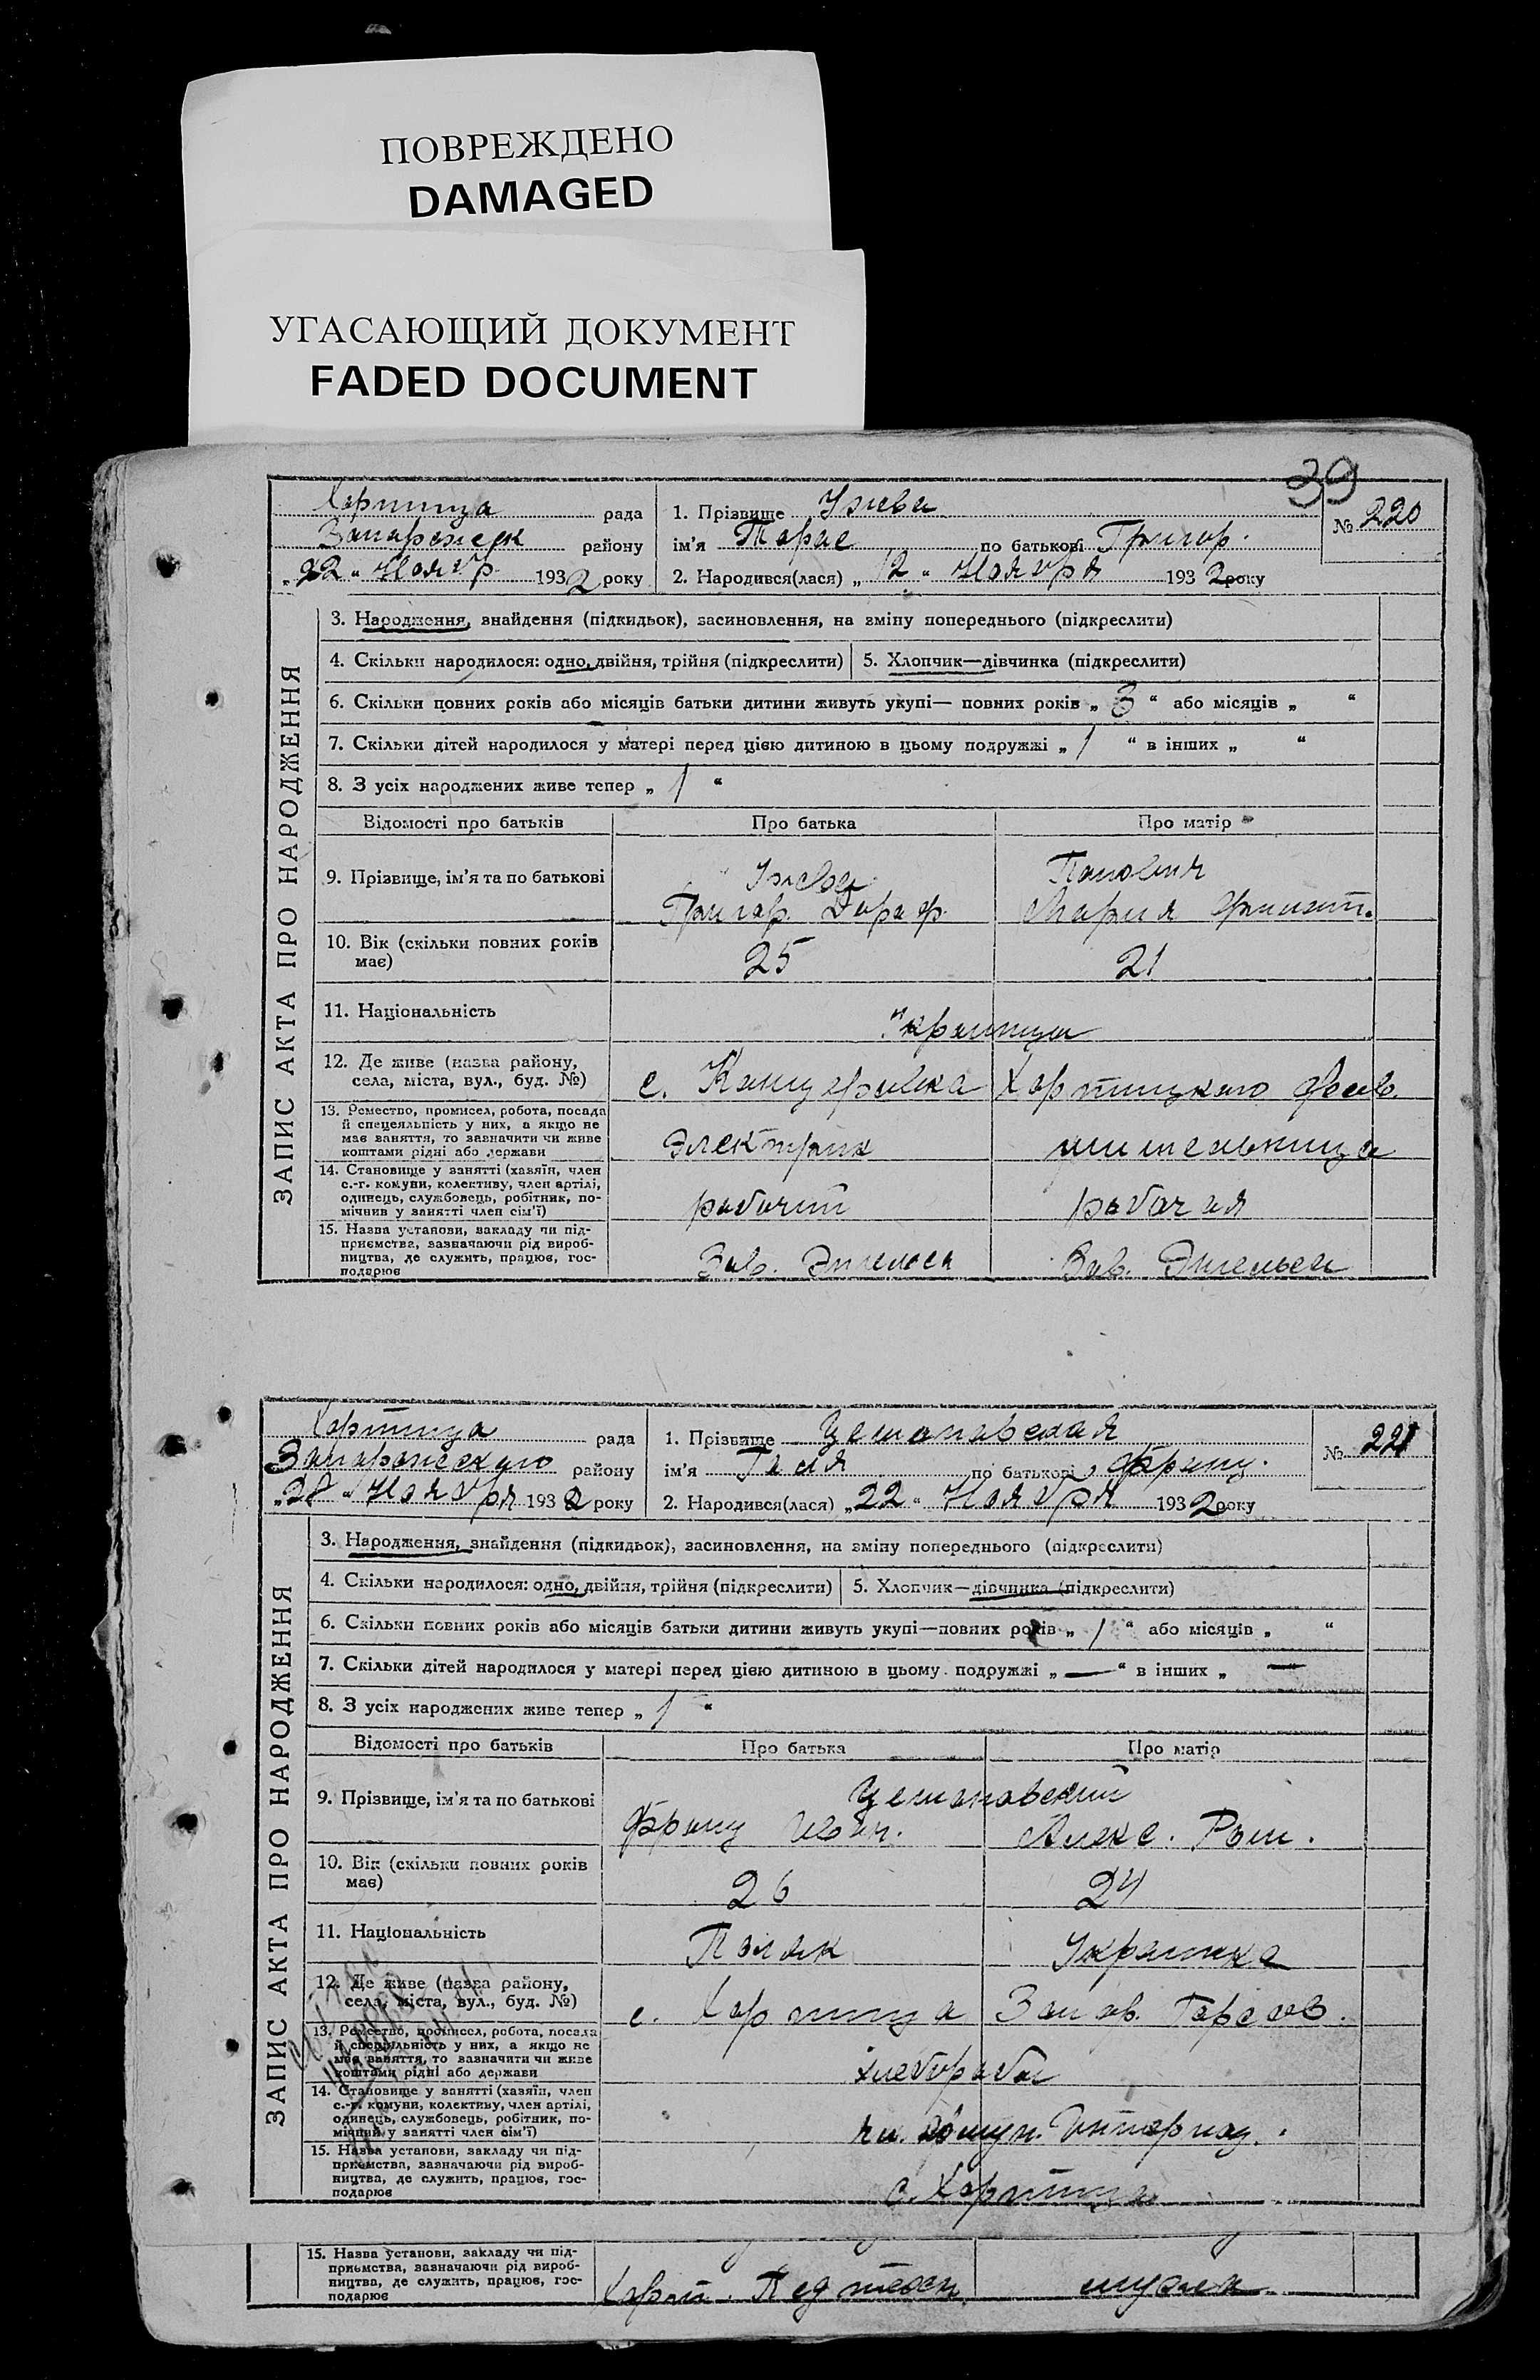 ПОВРЕЖДЕНО
DAMAGED
УГАСАЮЩИЙ ДОКУМЕНТ
FADED DOCUMENT
39
Хортица рада
района
"22" Ноябр. 1932 року
1. Прізвище
№ 220
ім'я Тарас по батькові Григор.
2. Народився(лася) "12" Ноября 1932 року
ЗАПИС АКТА ПРО НАРОДЖЕННЯ
3. Народження, знайдення (підкидьок), засиновлення, на зміну попереднього (підкреслити)
4. Скільки народилося: одно, двійня, трійня (підкреслити)
5. Хлопчик—дівчинка (підкреслити)
6. Скільки повних років або місяців батьки дитини живуть укупі— повних років „ 3 “ або місяців „ “
7. Скільки дітей народилося у матері перед цією дитиною в цьому подружжі „ 1 “ в інших „ “
8. З усіх народжених живе тепер „ 1 “
Відомості про батьків Про батька Про матір
9. Прізвище, ім'я та по батькові
Григор. Мария
10. Вік (скільки повних років має) 25 21
11. Національність Украинцы
12. Де живе (назва району, села, міста, вул., буд. №)
с. Канцеровка Хортицкого
13. Ремество, промисел, робота, посада й спецеяльність у них, а якщо не має заняття, то зазначити чи живе коштами рідні або держави
Электрик
14. Становище у занятті (хазяїн, член с.-г. комуни, колективу, член артілі, одинець, службовець, робітник, помічник у занятті член сім'ї)
рабочий рабочая
15. Назва установи, закладу чи підприємства, зазначаючи рід виробництва, де служить, працює, господарює
Зав. Энгельса Зав. Энгельса
Хортица рада
Запорожского району
"28" Ноября 1932 року
1. Прізвище
№ 221
ім'я по батькові Франц.
2. Народився(лася) "22" Ноября 1932 року
ЗАПИС АКТА ПРО НАРОДЖЕННЯ
3. Народження, знайдення (підкидьок), засиновлення, на зміну попереднього (підкреслити)
4. Скільки народилося: одно, двійня, трійня (підкреслити)
5. Хлопчик—дівчинка (підкреслити)
6. Скільки повних років або місяців батьки дитини живуть укупі—повних років „ 1 “ або місяців „ “
7. Скільки дітей народилося у матері перед цією дитиною в цьому подружжі „ — “ в інших „ — “
8. З усіх народжених живе тепер „ 1 “
Відомості про батьків Про батька Про матір
9. Прізвище, ім'я та по батькові
Франц Иван. Алекс. Ром.
10. Вік (скільки повних років має) 26 24
11. Національність Поляк Украинка
12. Де живе (назва району, села, міста, вул., буд. №)
с. Хортица
13. Ремество, промисел, робота, посада й спецеяльність у них, а якщо не має заняття, то зазначити чи живе коштами рідні або держави
хлебороб
14. Становище у занятті (хазяїн, член с.-г. комуни, колективу, член артілі, одинець, службовець, робітник, помічний у занятті член сім'ї)
чл. Комун. Интернац.
15. Назва установи, закладу чи підприємства, зазначаючи рід виробництва, де служить, працює, господарює
с. Хортица
15. Назва установи, закладу чи підприємства, зазначаючи рід виробництва, де служить, працює, господарює
Хорт. Пед